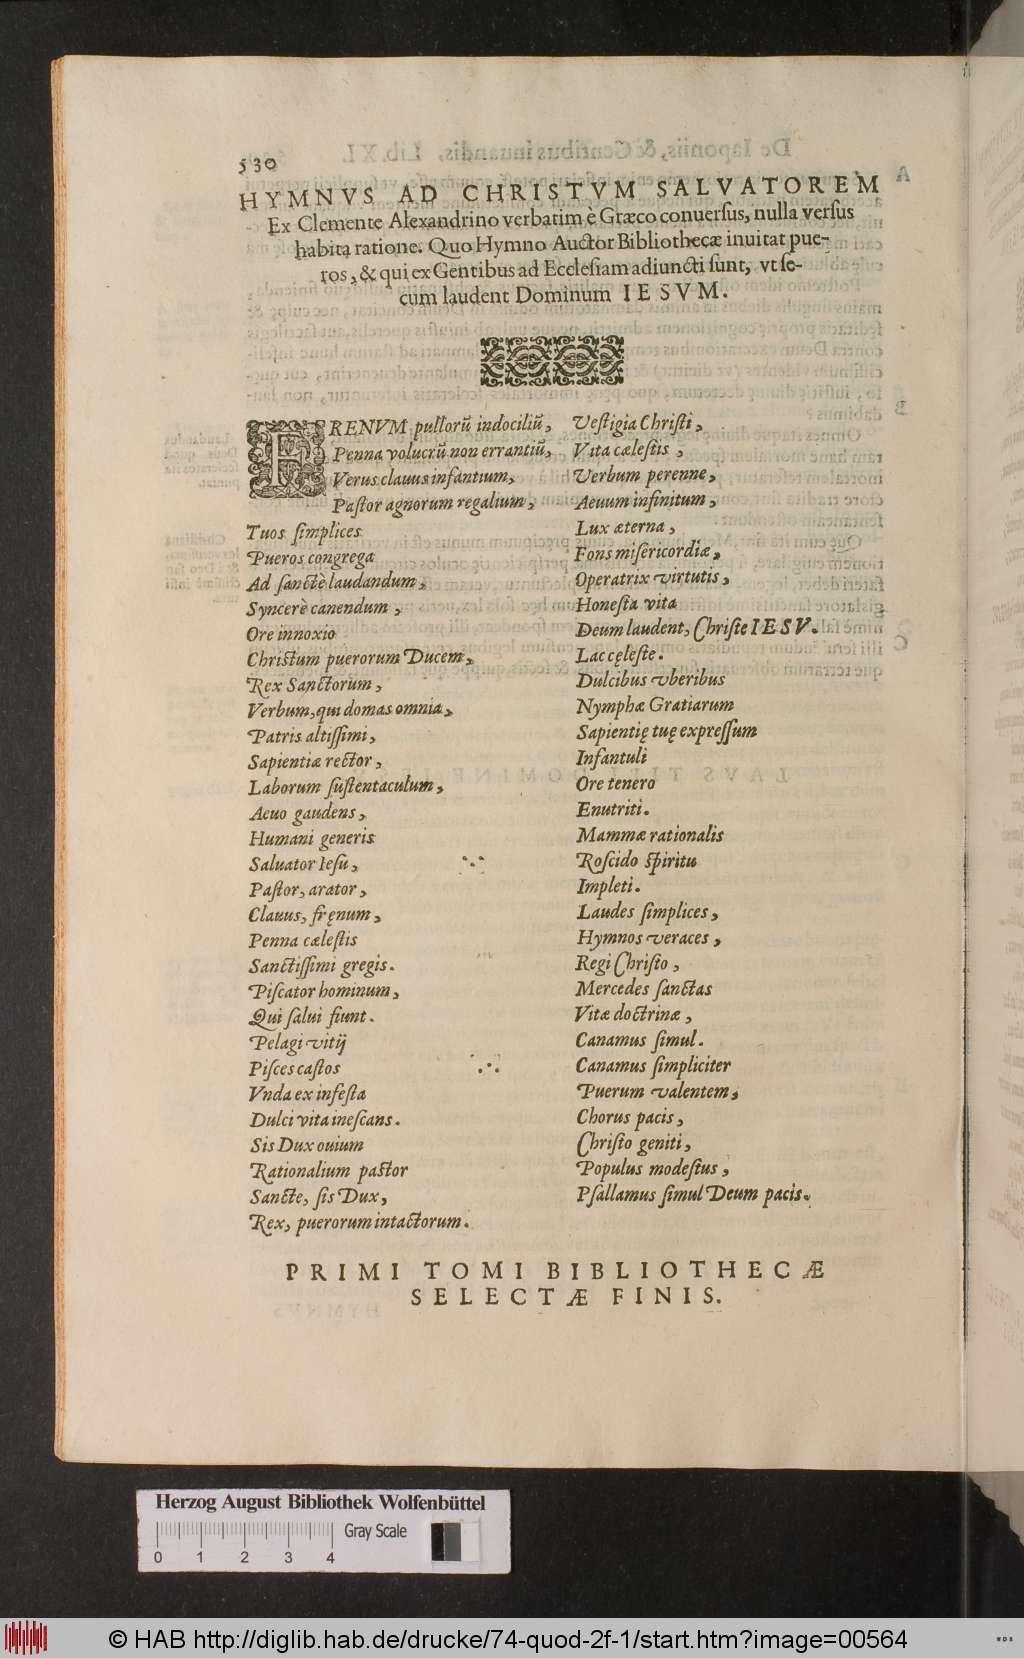 530
HYMNVS AD CHRISTVM SALVATOREM
Ex Clemente Alexandrino verbatim è Græco conuerſus, nulla verſus
habita ratione. Quo Hymno Auctor Bibliothecæ inuitat pue-
ros, & qui ex Gentibus ad Eccleſiam adiuncti ſunt, vt ſe-
cum laudent Dominum IESVM.
FRENVM pullorũ indociliũ,
Penna volucrũ non errantiũ,
Verus clauus infantium,
Paſtor agnorum regalium,
Tuos ſimplices
Pueros congrega
Ad ſanctè laudandum,
Syncerè canendum,
Ore innoxio
Chriſtum puerorum Ducem,
Rex Sanctorum,
Verbum, qui domas omnia,
Patris altiſſimi,
Sapientiæ rector,
Laborum ſuſtentaculum,
Aeuo gaudens,
Humani generis
Saluator Ieſu,
Paſtor, arator,
Clauus, fręnum,
Penna cæleſtis
Sanctiſſimi gregis.
Piſcator hominum,
Qui ſalui fiunt.
Pelagi vitij
Piſces caſtos
Vnda ex infeſta
Dulci vita ineſcans.
Sis Dux ouium
Rationalium paſtor
Sancte, ſis Dux,
Rex, puerorum intactorum.
Veſtigia Chriſti,
Vita cæleſtis,
Verbum perenne,
Aeuum infinitum,
Lux æterna,
Fons miſericordiæ,
Operatrix virtutis,
Honeſta vita
Deum laudent, Chriſte IESV.
Lac cęleſte.
Dulcibus vberibus
Nymphæ Gratiarum
Sapientię tuę expreſſum
Infantuli
Ore tenero
Enutriti.
Mammæ rationalis
Roſcido ſpiritu
Impleti.
Laudes ſimplices,
Hymnos veraces,
Regi Chriſto,
Mercedes ſanctas
Vitæ doctrinæ,
Canamus ſimul.
Canamus ſimpliciter
Puerum valentem,
Chorus pacis,
Chriſto geniti,
Populus modeſtus,
Pſallamus ſimul Deum pacis.
PRIMI TOMI BIBLIOTHECÆ
SELECTÆ FINIS.
Herzog August Bibliothek Wolfenbüttel
Gray Scale
0 1 2 3 4
© HAB http://diglib.hab.de/drucke/74-quod-2f-1/start.htm?image=00564